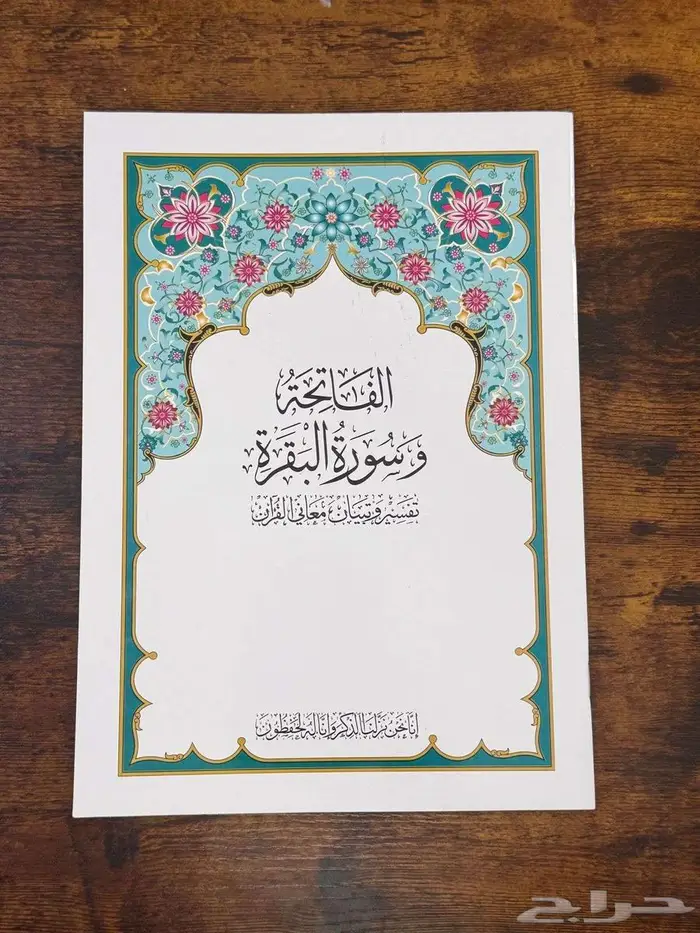 الفَاتِحَةُ
وَسُورَةُ البَقَرَةِ
تفسير وتبيان معاني القرآن
إنا نحن نزلنا الذكر وإنا له لحفظون
حراج